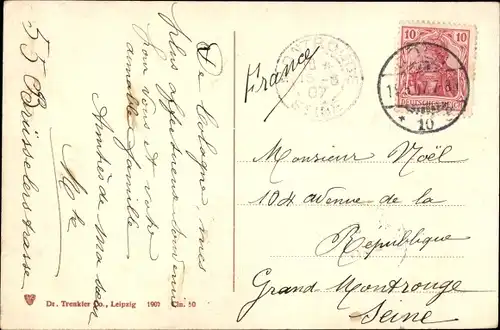 De Cologne, mes
plus affectueux souvenirs
Pour vous et votre
aimable famille
Amitiés de Ma
55 Brüsselerstrasse
France
10 10
DEUTSCHES
* 10
MONTROUGE
SEINE
Monsieur Noël
104 avenue de la
Republique
Grand Montrouge
Seine
Dr. Trenkler Co., Leipzig 1907 Cln. 50